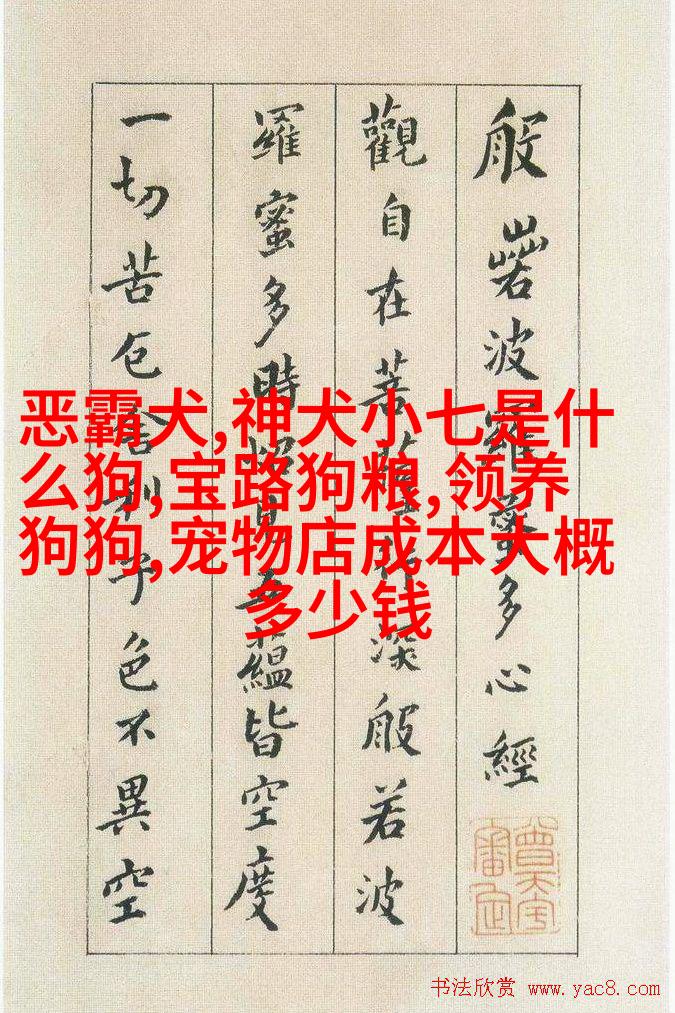 恶霸犬,神犬小七是什
么狗,宝路狗粮,领养
狗狗,宠物店成本大概
多少钱
般若波羅蜜多心經
觀自在菩薩行深般若波
羅蜜多時照見五蘊皆空度
一切苦厄舍利子色不異空
书法欣赏 www.yac8.com